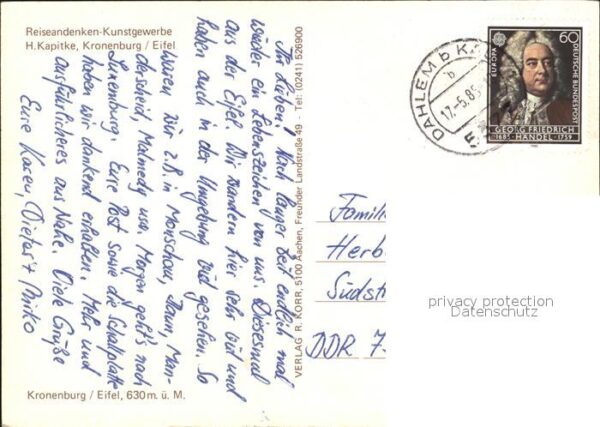 Reiseandenken-Kunstgewerbe
H. Kapitke, Kronenburg / Eifel
Ihr Lieben! Nach langer Zeit endlich mal
wieder ein Lebenszeichen von uns. Diesesmal
aus der Eifel. Wir wandern hier sehr viel und
haben auch in der Umgebung viel gesehen. So
waren wir z.B. in Monschau, Daun, Man-
derscheid, Malmedy usw. Morgen geht's nach
Luxemburg. Eure Post sowie die Schallplatte
haben wir dankend erhalten. Mehr und
ausführlicheres aus Nahe. Viele Grüße
Eure Karen, Dieter + Mirko
Kronenburg / Eifel, 630 m. ü. M.
VERLAG R. KORR, 5100 Aachen, Freunder Landstraße 49 - Tel: (0241) 526900
DAHLEM b K
b
17.-5.85
EUROPA
60
DEUTSCHE BUNDESPOST
GEORG FRIEDRICH
1685 HÄNDEL 1759
Famili
Herb
Südst
DDR 7
privacy protection
Datenschutz